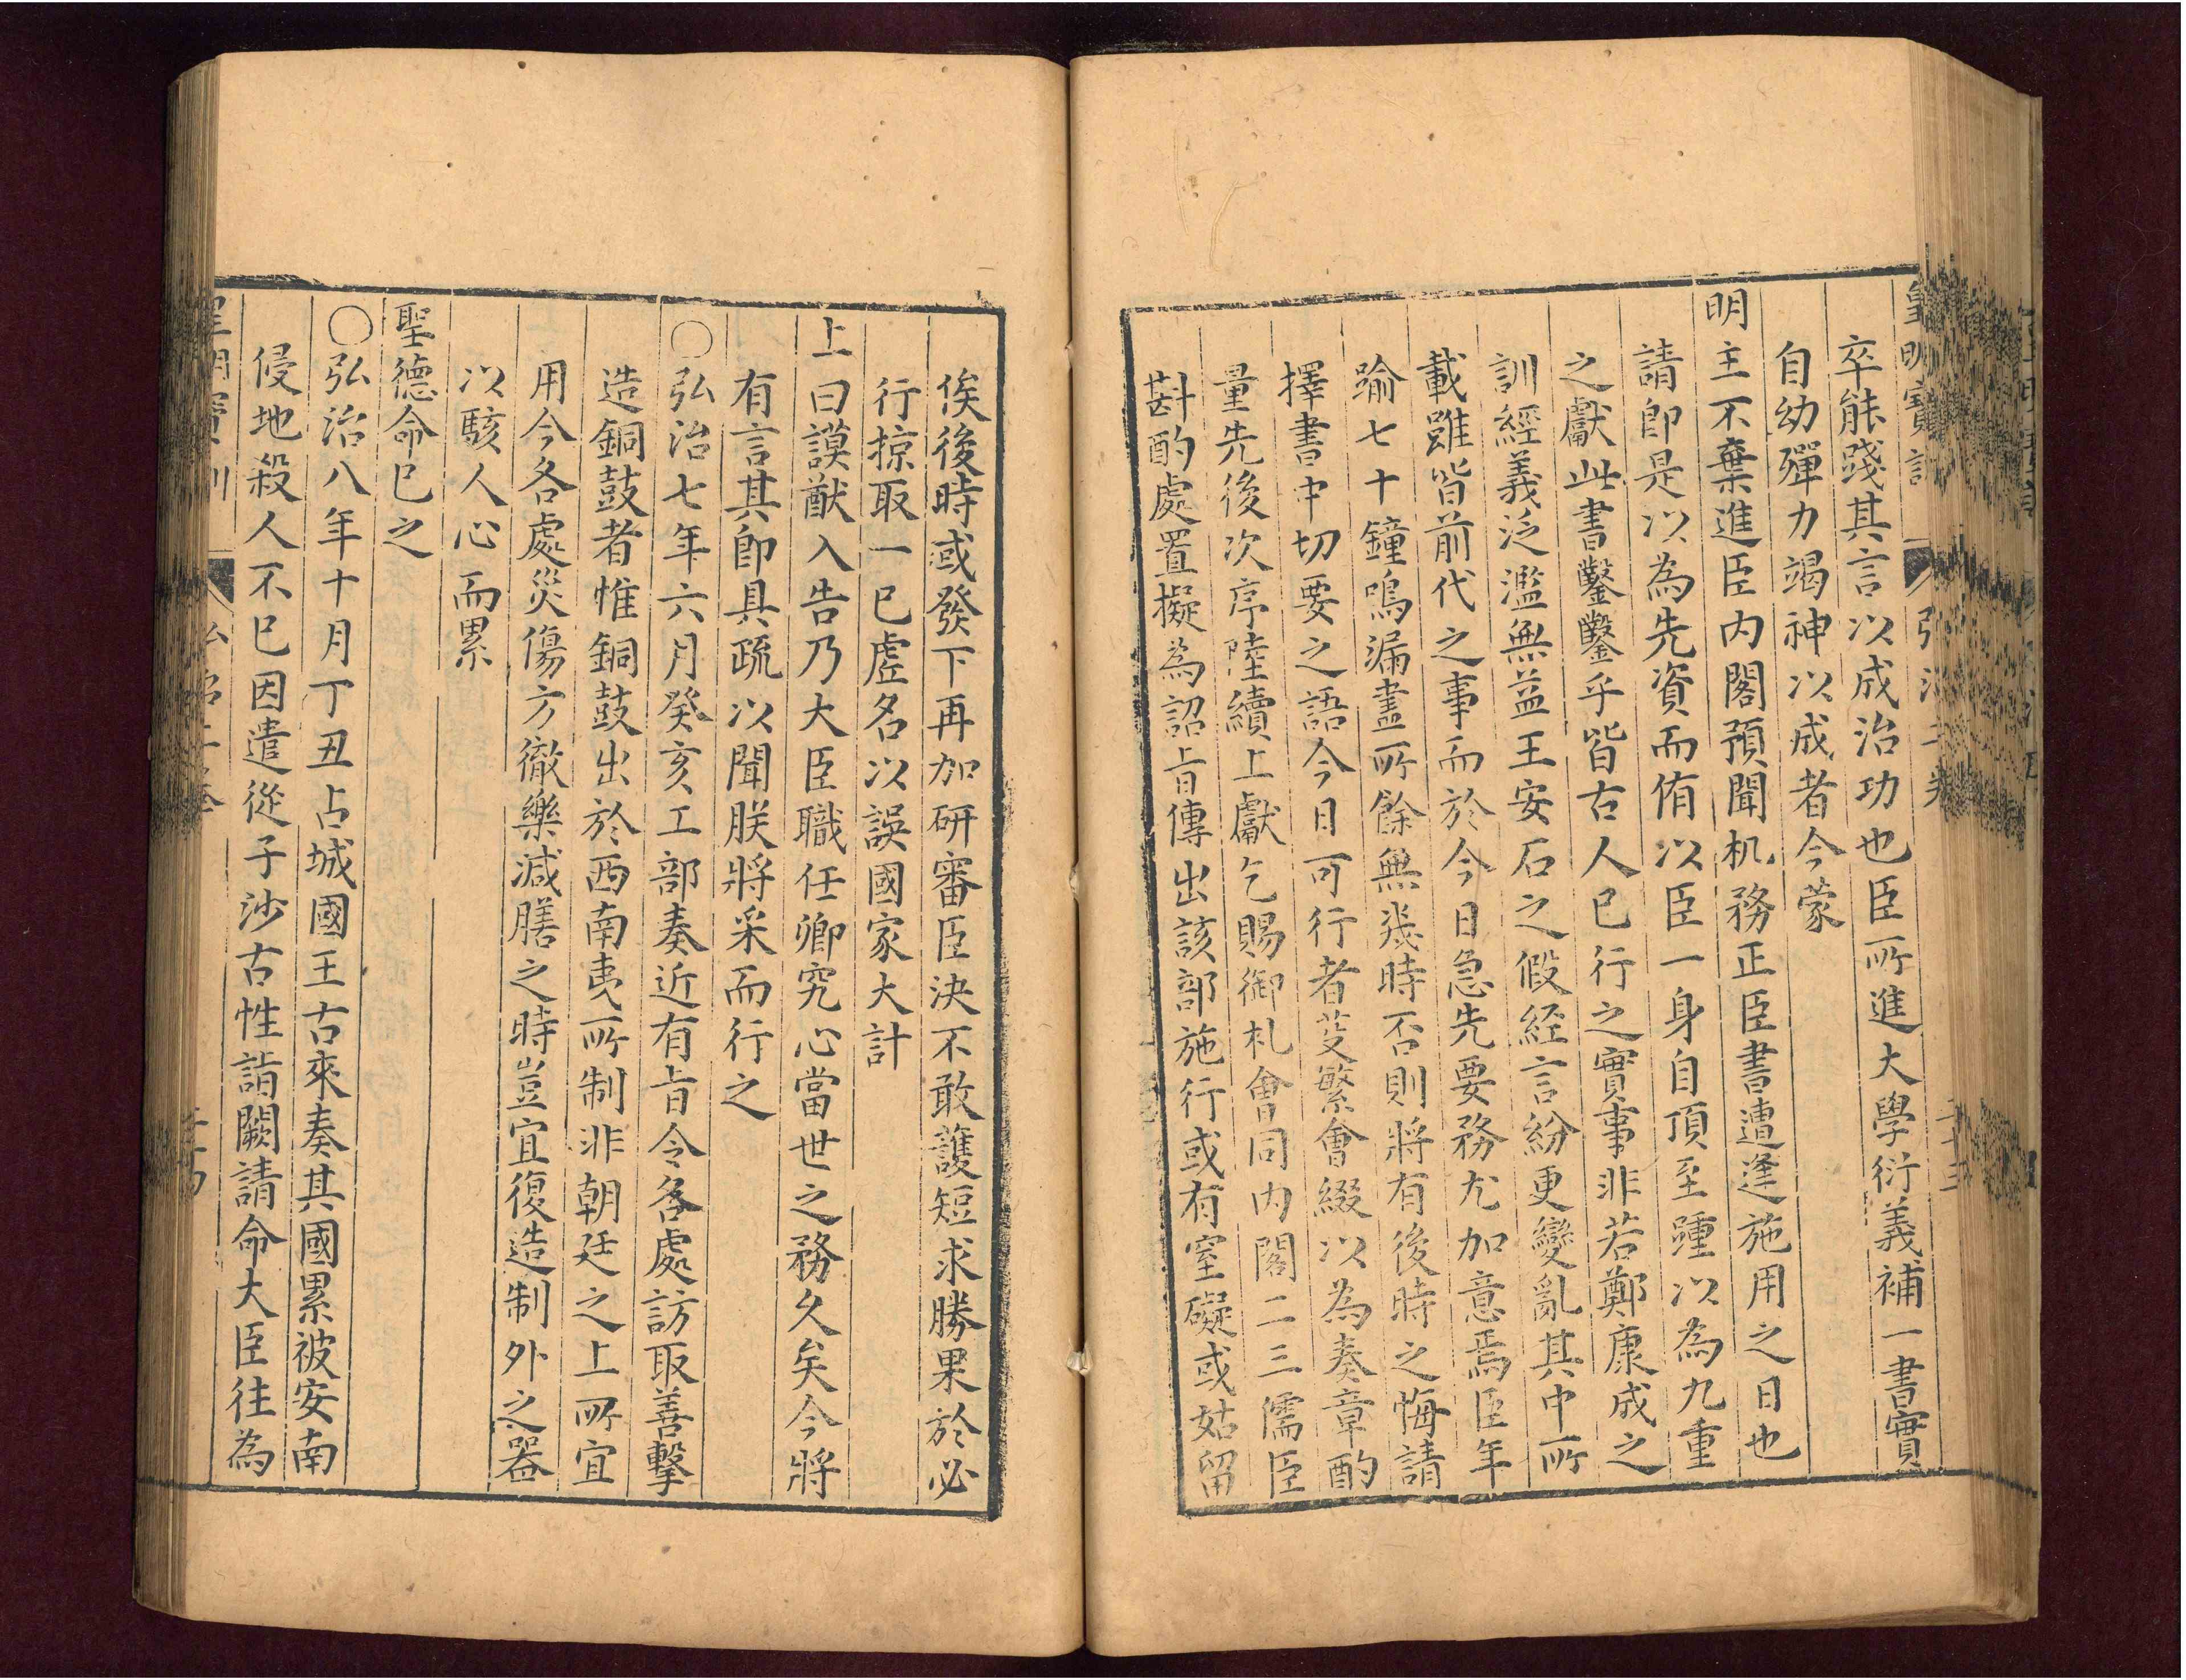 皇明寶訓 弘治二卷 二十三
卒能踐其言以成治功也臣所進大學衍義補一書實
自幼殫力竭神以成者今蒙
明主不棄進臣内閣預聞机務正臣書遭逢施用之日也
請即是以為先資而侑以臣一身自頂至踵以為九重
之獻此書鑿鑿乎皆古人已行之實事非若鄭康成之
訓經義泛濫無益王安石之假經言紛更變亂其中所
載雖皆前代之事而於今日急先要務尤加意焉臣年
踰七十鐘鳴漏盡所餘無幾時否則將有後時之悔請
擇書中切要之語今日可行者芟繁會綴以為奏章酌
量先後次序陸續上獻乞賜御札會同内閣二三儒臣
斟酌處置擬為詔旨傳出該部施行或有窒礙或姑留
俟後時或發下再加研審臣決不敢護短求勝果於必
行掠取一已虛名以誤國家大計
上曰謨猷入告乃大臣職任卿究心當世之務久矣今將
有言其即具疏以聞朕將采而行之
○弘治七年六月癸亥工部奏近有旨令各處訪取善擊
造銅鼓者惟銅鼓出於西南夷所制非朝廷之上所宜
用今各處災傷方徹樂減膳之時豈宜復造制外之器
以駭人心而累
聖德命已之
○弘治八年十月丁丑占城國王古來奏其國累被安南
侵地殺人不已因遣從子沙古性詣闕請命大臣往為
皇明寶訓 弘治二卷